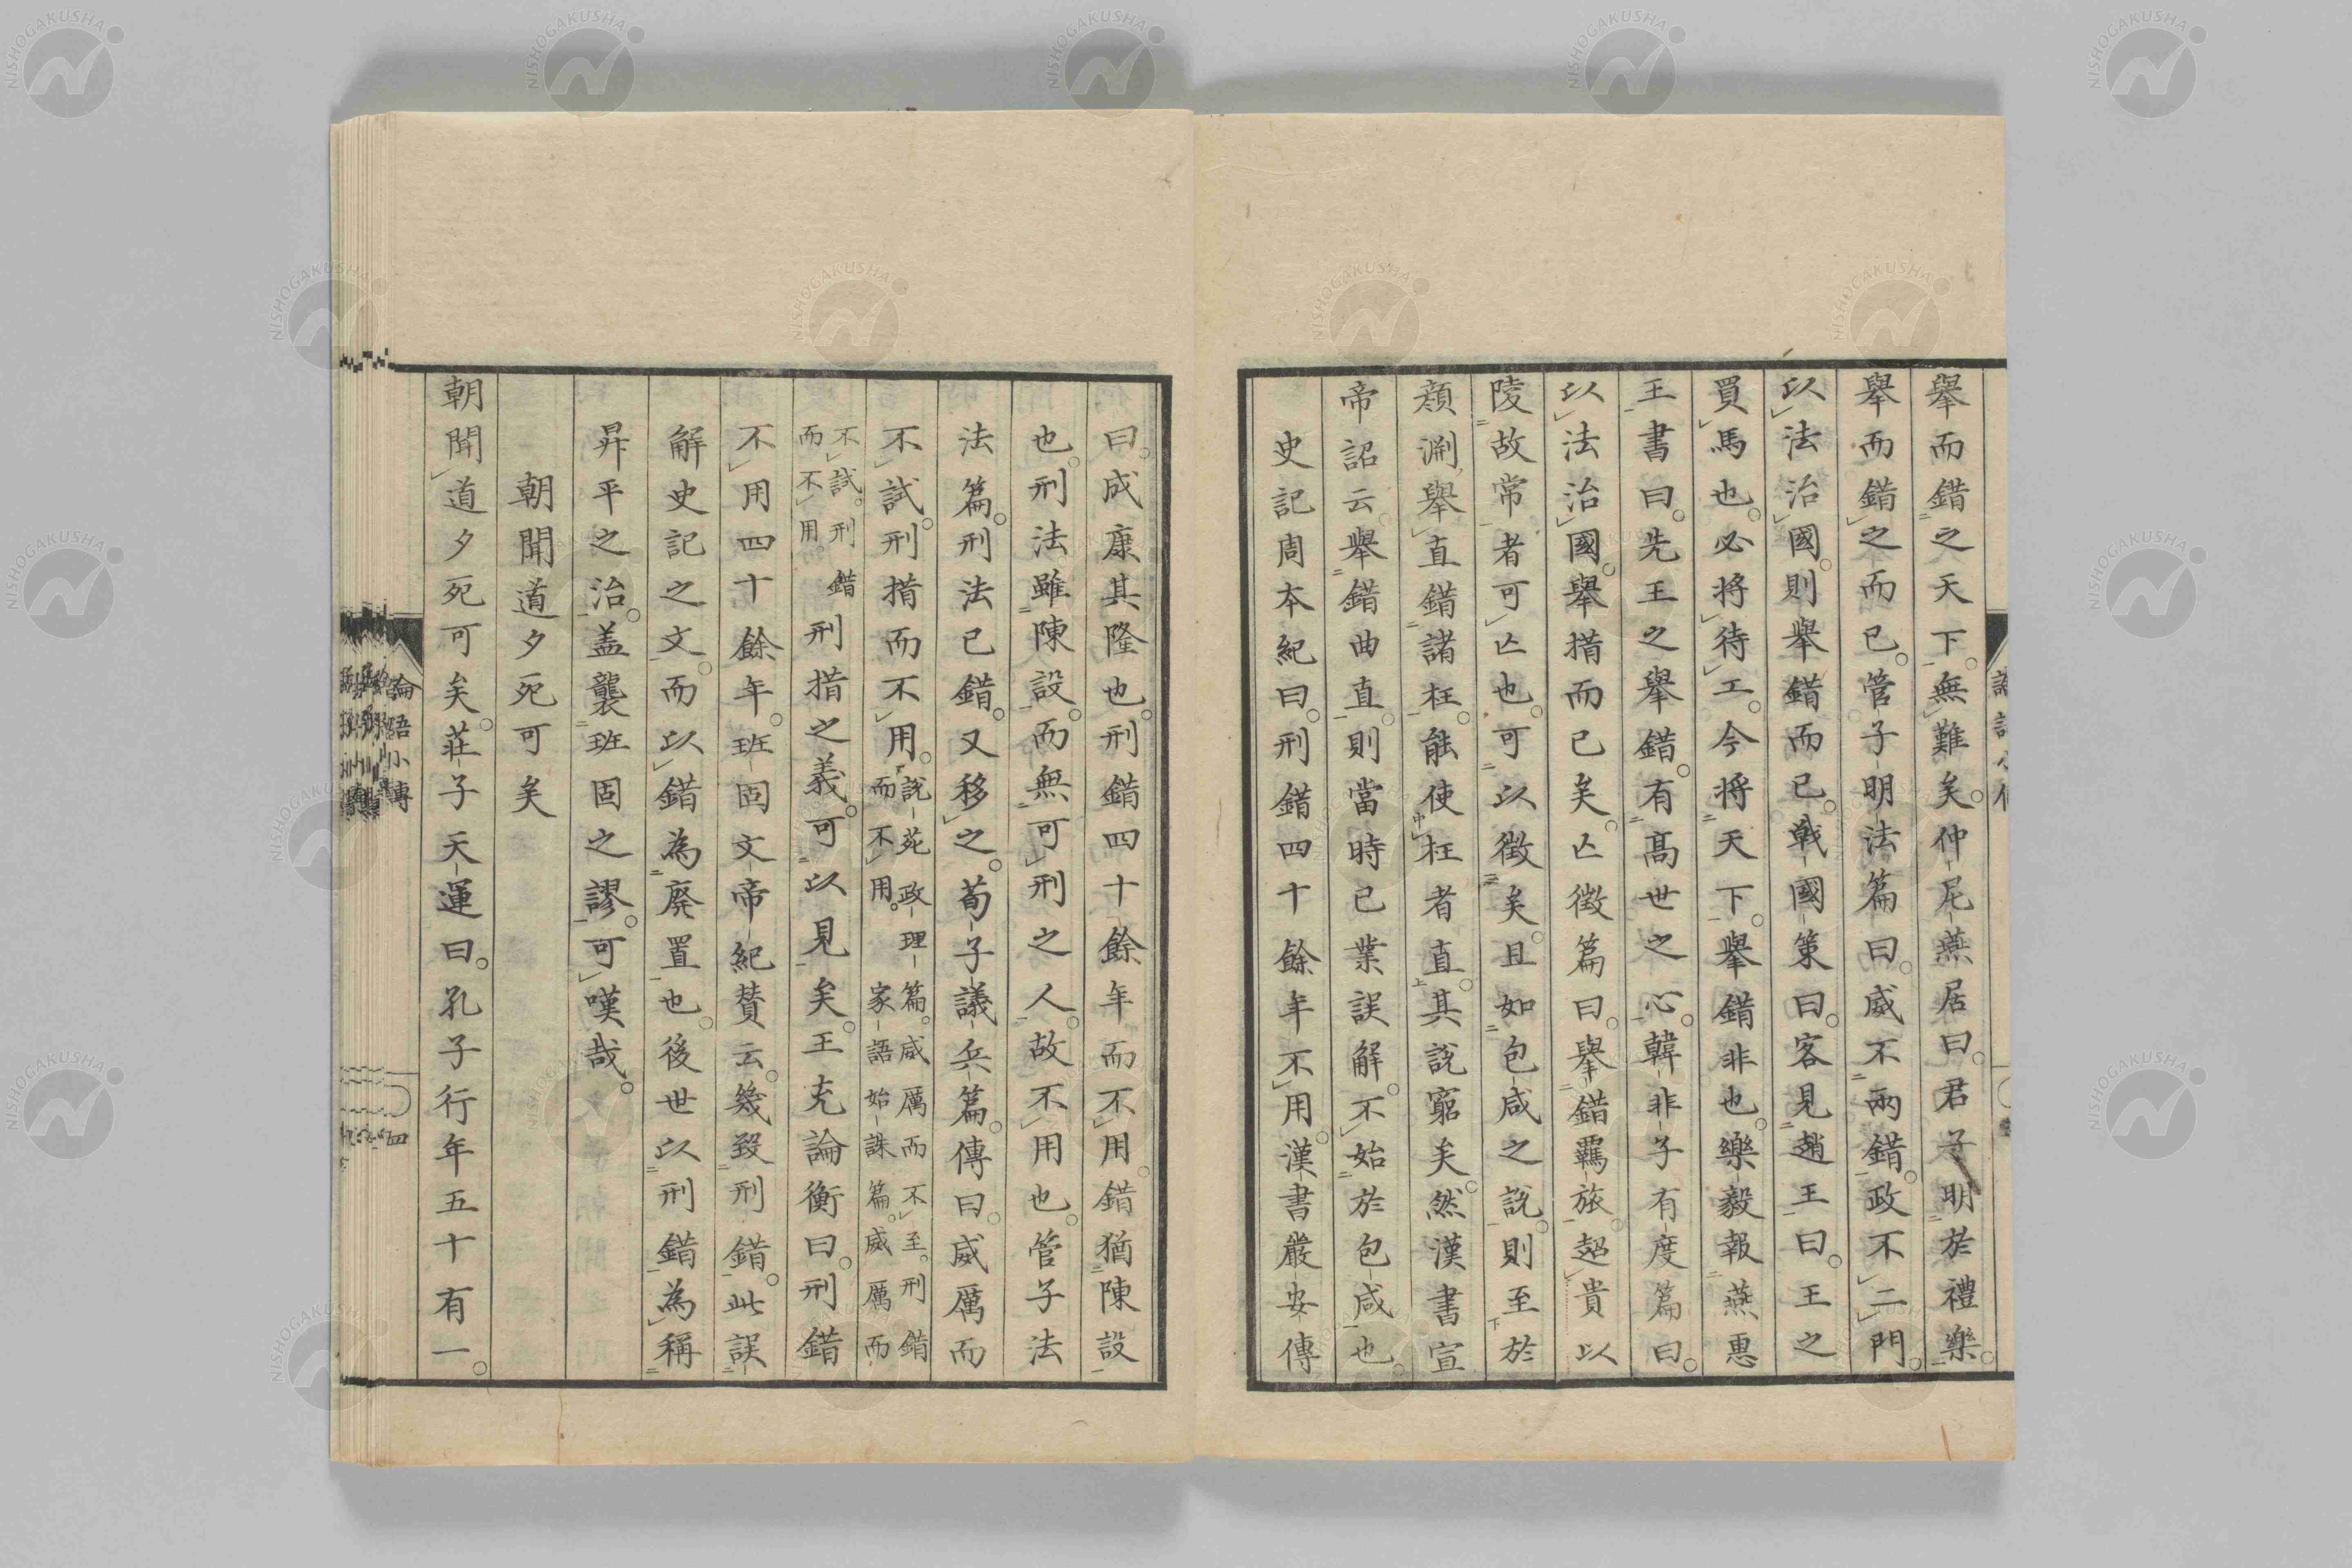 舉而錯之天下。無難矣。仲尼燕居曰。君子明於禮樂。
舉而錯之而已。管子明法篇曰。威不兩錯。政不二門。
以法治國。則舉錯而已。戰國策曰。客見趙王曰。王之
買馬也。必將待工。今將天下。舉錯非也。樂毅報燕惠
王書曰。先王之舉錯。有高世之心。韓非子有度篇曰。
以法治國。舉措而已矣。亡徵篇曰。舉錯羈旅。超貴以
陵故常者可亡也。可以徵矣。且如包咸之說。則至於
顏淵舉直錯諸枉。能使枉者直。其說窮矣。然漢書宣
帝詔云。舉錯曲直。則當時已業誤解。不始於包咸也。
史記周本紀曰。刑錯四十餘年不用。漢書嚴安傳
曰。成康其隆也。刑錯四十餘年而不用。錯猶陳設
也。刑法雖陳設。而無可刑之人。故不用也。管子法
法篇。刑法已錯。又移之。荀子議兵篇。傳曰。威厲而
不試。刑措而不用。說苑政理篇。威厲而不至。刑錯
而不用。家語始誅篇。威厲而
不試。刑錯
而不用。刑措之義。可以見矣。王充論衡曰。刑錯
不用四十餘年。班固文帝紀贊云。幾致刑錯。此誤
解史記之文。而以錯為廢置也。後世以刑錯為稱
昇平之治。蓋襲班固之謬。可嘆哉。
朝聞道夕死可矣
朝聞道夕死可矣。莊子天運曰。孔子行年五十有一。
論語小傳
四
NISHOGAKUSHA